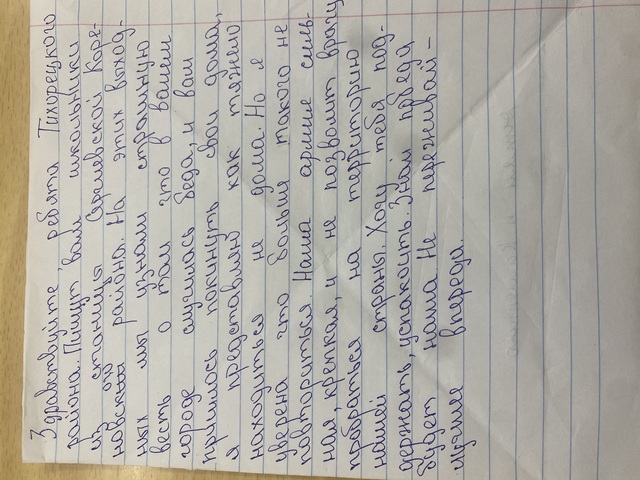 Здравствуйте, ребята Тихорецкого
района. Пишут вам школьники
из станицы Сергиевской Коре-
новского района. На этих выход-
ных мы узнали страшную
весть о том что в вашем
городе случилась беда, и вам
пришлось покинуть свои дома,
я представляю как тяжело
находиться не дома. Но я
уверена что больше такого не
повториться. Наша армия силь-
ная, крепкая, и не позволит врагу
пробраться на территорию
нашей страны. Хочу тебя под-
держать, успакоить. Знай победа
будет наша. Не переживай –
лучшее впереди.